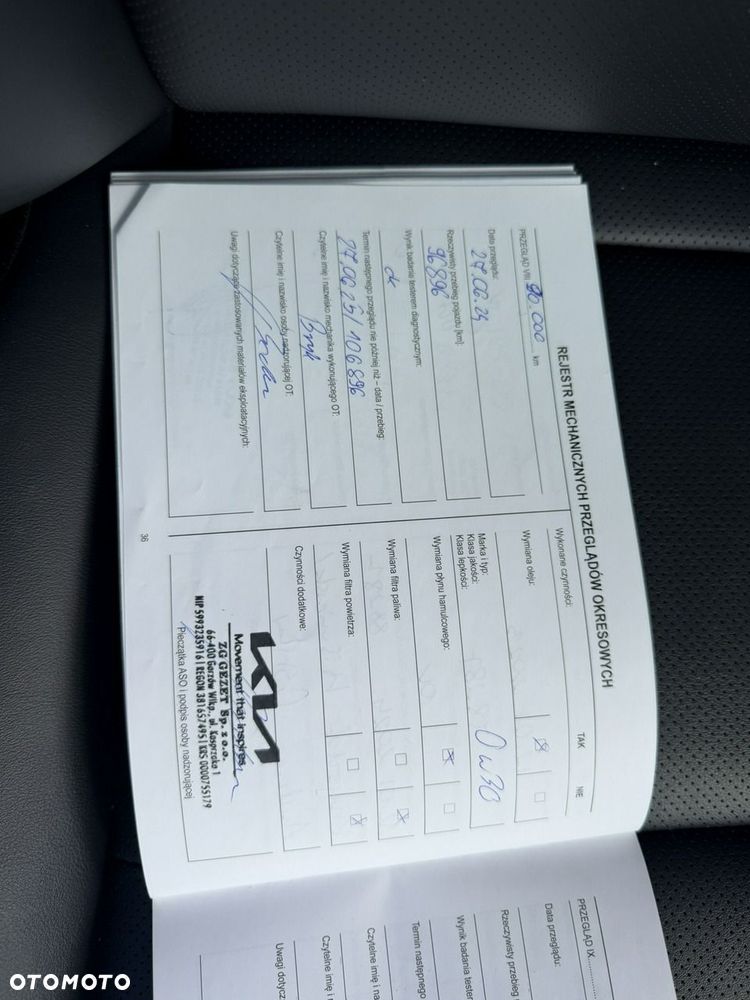 REJESTR MECHANICZNYCH PRZEGLĄDÓW OKRESOWYCH
PRZEGLĄD VIII 90.000 km
Data przeglądu:
27.06.24
Rzeczywisty przebieg pojazdu [km]:
96896
Wynik badania testerem diagnostycznym:
ok
Termin następnego przeglądu nie później niż – data / przebieg:
27.06.25 / 106 896
Czytelne imię i nazwisko mechanika wykonującego OT:
Bryk
Czytelne imię i nazwisko osoby nadzorującej OT:
Uwagi dotyczące zastosowanych materiałów eksploatacyjnych:
Wykonane czynności:
TAK NIE
Wymiana oleju:
Marka i typ:
Klasa jakości:
Klasa lepkości:
0w30
Wymiana płynu hamulcowego:
Wymiana filtra paliwa:
Wymiana filtra powietrza:
Czynności dodatkowe:
KIA
Movement that inspires
ZG GEZET Sp. z o.o.
66-400 Gorzów Wlkp. ul. Kasprzaka 1
NIP 5993235916 | REGON 381657495 | KRS 0000755179
Pieczątka ASO i podpis osoby nadzorującej
36
PRZEGLĄD IX
Data przeglądu:
Rzeczywisty przebieg
Wynik badania teste
Termin następnego
Czytelne imię i na
Czytelne imię i
Uwagi dotycz
OTOMOTO